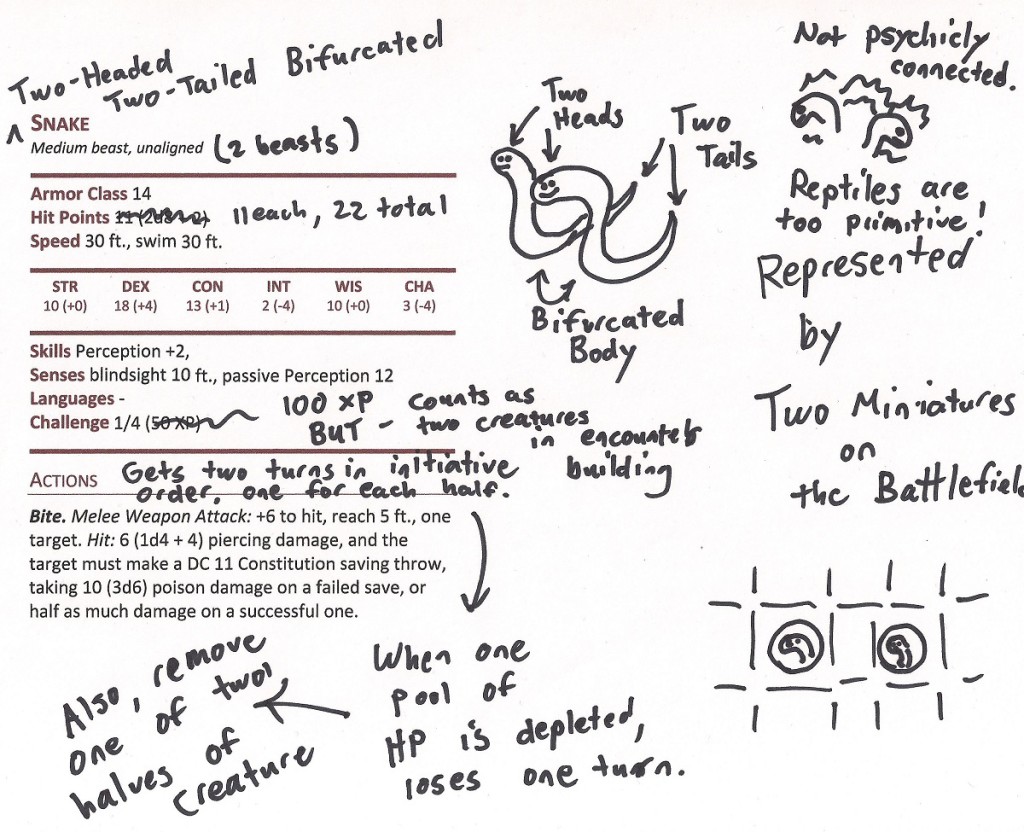 Two-Headed
Two-Tailed Bifurcated
SNAKE
Medium beast, unaligned (2 beasts)
Armor Class 14
Hit Points 11 (2d8+2) 11 each, 22 total
Speed 30 ft., swim 30 ft.
STR DEX CON INT WIS CHA
10 (+0) 18 (+4) 13 (+1) 2 (-4) 10 (+0) 3 (-4)
Skills Perception +2,
Senses blindsight 10 ft., passive Perception 12
Languages -
Challenge 1/4 (50 XP) 100 XP counts as
BUT - two creatures
in encounter
building
ACTIONS Gets two turns in initiative
order, one for each half.
Bite. Melee Weapon Attack: +6 to hit, reach 5 ft., one
target. Hit: 6 (1d4 + 4) piercing damage, and the
target must make a DC 11 Constitution saving throw,
taking 10 (3d6) poison damage on a failed save, or
half as much damage on a successful one.
When one
pool of
HP is depleted,
loses one turn.
Also, remove
one of two
halves of
creature
Two
Heads
Two
Tails
Bifurcated
Body
Not psychicly
connected.
Reptiles are
too primitive!
Represented
by
Two Miniatures
on
the Battlefield